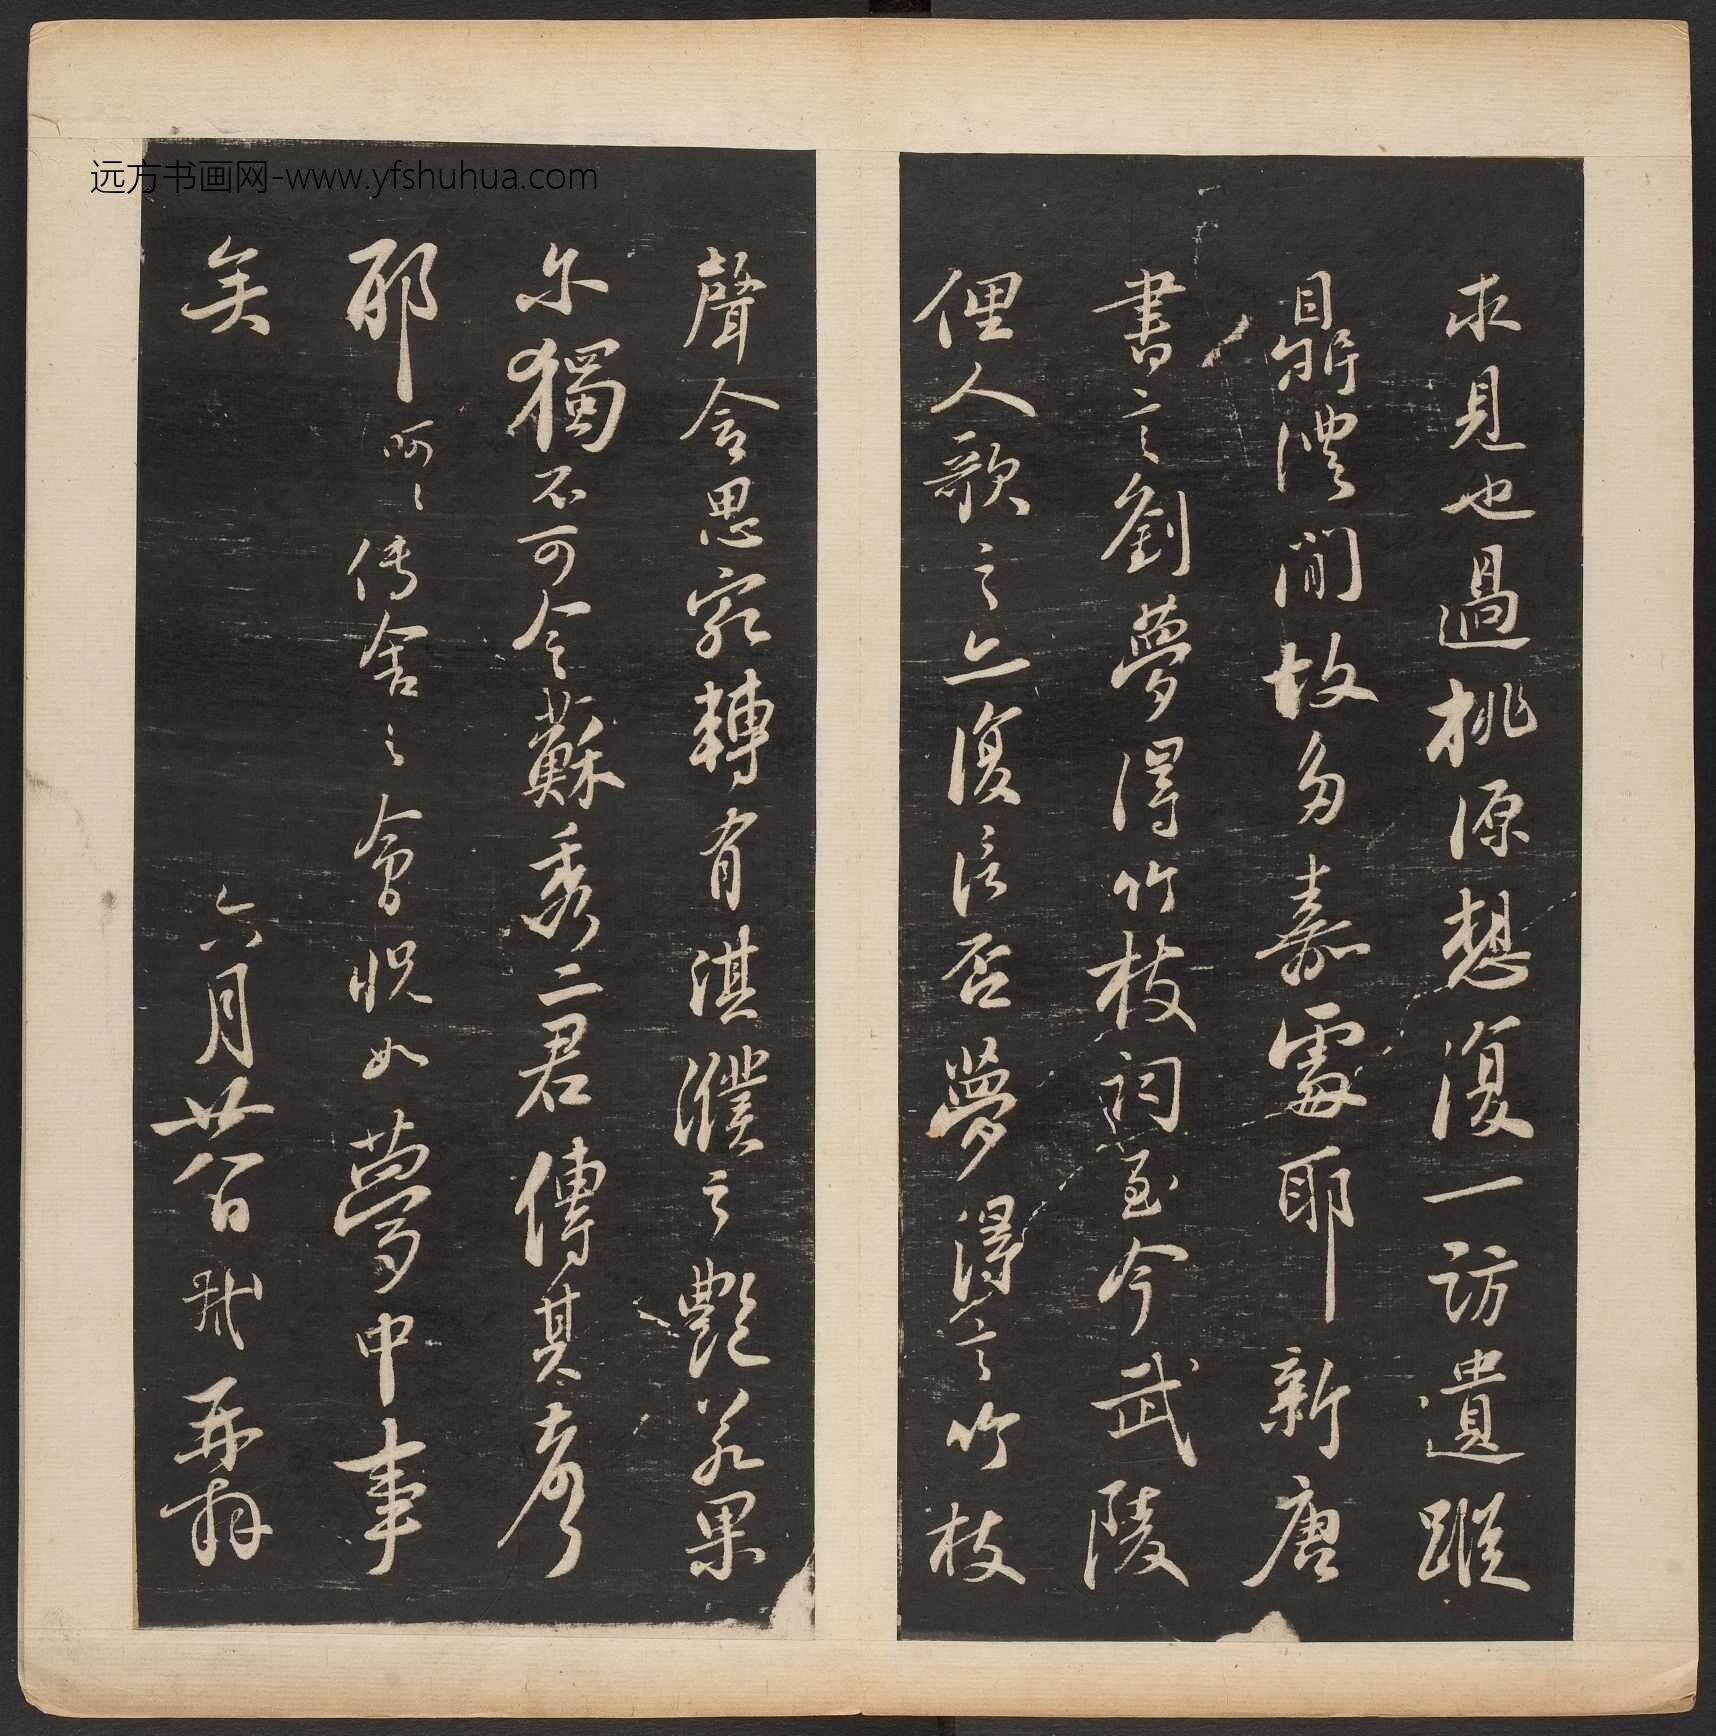 远方书画网-www.yfshuhua.com
求見也過桃源想復一訪遺蹤
鼎澧間故多嘉處耶新唐
書言劉夢得竹枝詞至今武陵
俚人歌之亦復信否夢得言竹枝
聲含思宛轉有淇濮之艷若果
尔獨不可令蘇秀二君傳其
耶呵呵傳舍之會怳如夢中事
矣
六月廿 日 再拜